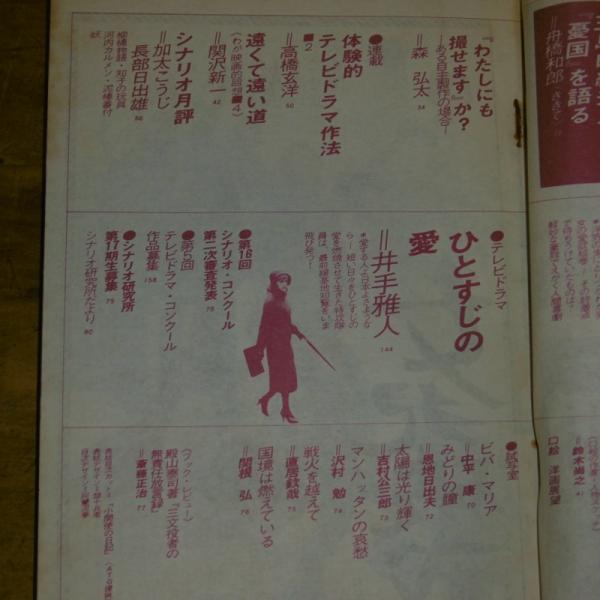 『わたしにも
撮せます』か?
―ある自主製作の場合―
＝森 弘太 34
●連載
体験的
テレビドラマ作法
■2
＝高橋玄洋 50
遠くて遠い道
(わが映画的回想■4)
＝関沢新一 42
シナリオ月評
＝加太こうじ
長部日出雄 86
河内カルメン・泥棒番付
●テレビドラマ
ひとすじの
愛
＝井手雅人 144
●第16回
シナリオ・コンクール
第二次審査発表 78
●第5回
テレビドラマ・コンクール
作品募集 158
●シナリオ研究所
第17期生募集 79
シナリオ研究所だより 80
●試写室
ビバ・マリア
＝中平 康 70
みどりの瞳
＝恩地日出夫 72
太陽は光り輝く
＝吉村公三郎 73
マンハッタンの哀愁
＝沢村 勉 74
戦火を越えて
＝直居欽哉 75
国境は燃えている
＝関根 弘 76
〈ブック・レビュー〉
殿山泰司著「三文役者の
無責任放言録」
＝斎藤正治 77
『憂国』を語る
＝舟橋和郎
＝鈴木尚之
口絵 洋画展望